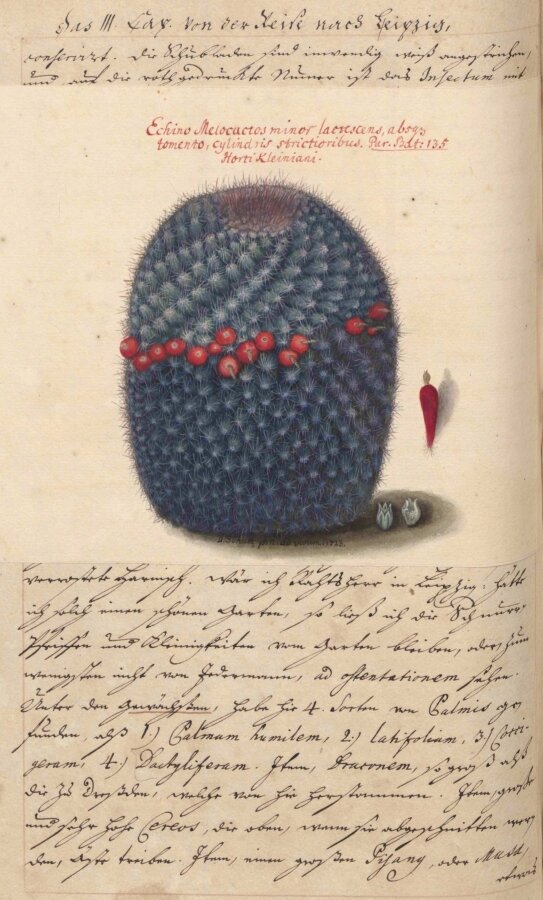 Das III Cap. von der Reise nach Leipzig,
conservirt. Die Schubladen sind inwendig weiß angestrichen,
und auf die roth gedruckte Numer ist das Insectum mit
Echino Melocactos minor lactescens, absq3
tomento, cylindris strictioribus. Par. Bat: 135
Horti Kleiniani.
verrostete Harnisch. Wär ich Rathsherr in Leipzig: hätte
ich solch einen schönen Garten, so ließ ich die Schnurr
Pfeiffen und Kleinigkeiten vom Garten bleiben, oder zum
wenigsten nicht von Jedermann, ad ostentationem sehen.
Unter den Gewächsen, habe hie 4. Sorten von Palmis ge
funden, alß 1.) Palmam humilem, 2.) latifoliam, 3.) Cocci
geram, 4.) Dactyliferam. Item, Draconem, so groß alß
die zu Dresden, welche von hie herstammen. Item, große
und sehr hohe Cereos, die oben, wenn sie abgeschnitten wer
den, Äste treiben. Item, einen großen Pisang, oder Musa,
etwas